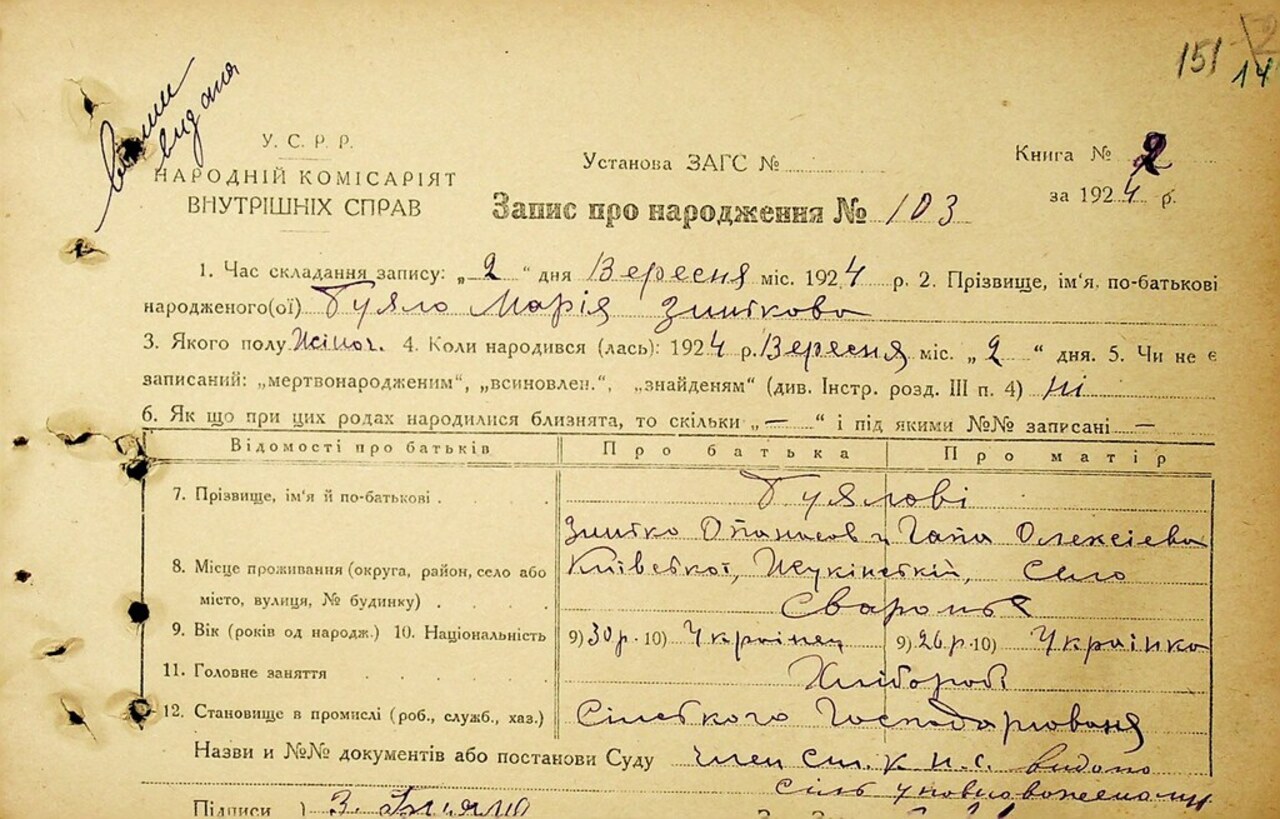 151
14
виписи
видана
У. С. Р. Р.
НАРОДНІЙ КОМІСАРІЯТ
ВНУТРІШНІХ СПРАВ
Установа ЗАГС №
Книга № 2
за 1924 р.
Запис про народження № 103
1. Час складання запису: „2“ дня Вересня міс. 1924 р. 2. Прізвище, ім'я, по-батькові
народженого(ої) Гуяло Марія Зінькова
3. Якого полу Жіноч. 4. Коли народився (лась): 1924 р. Вересня міс. „2“ дня. 5. Чи не є
записаний: „мертвонародженим“, „всиновлен.“, „знайденям“ (див. Інстр. розд. III п. 4) ні
6. Як що при цих родах народилися близнята, то скільки „—“ і під якими №№ записані —
Відомості про батьків Про батька Про матір
7. Прізвище, ім'я й по-батькові . Гуялові
Зінько Опанасов и Гапа Олексієва
8. Місце проживання (округа, район, село або Київської, Жукінській, Село
місто, вулиця, № будинку) . Сваромья
9. Вік (років од народж.) 10. Національність 9) 30 р. 10) Українец 9) 26 р. 10) Українка
11. Головне заняття Хлібороб
12. Становище в промислі (роб., служб., хаз.) Сільського Господарюваня
Назви и №№ документів або постанови Суду член К. Н. С. видано
сіль уповноваженому
Підписи ) З.